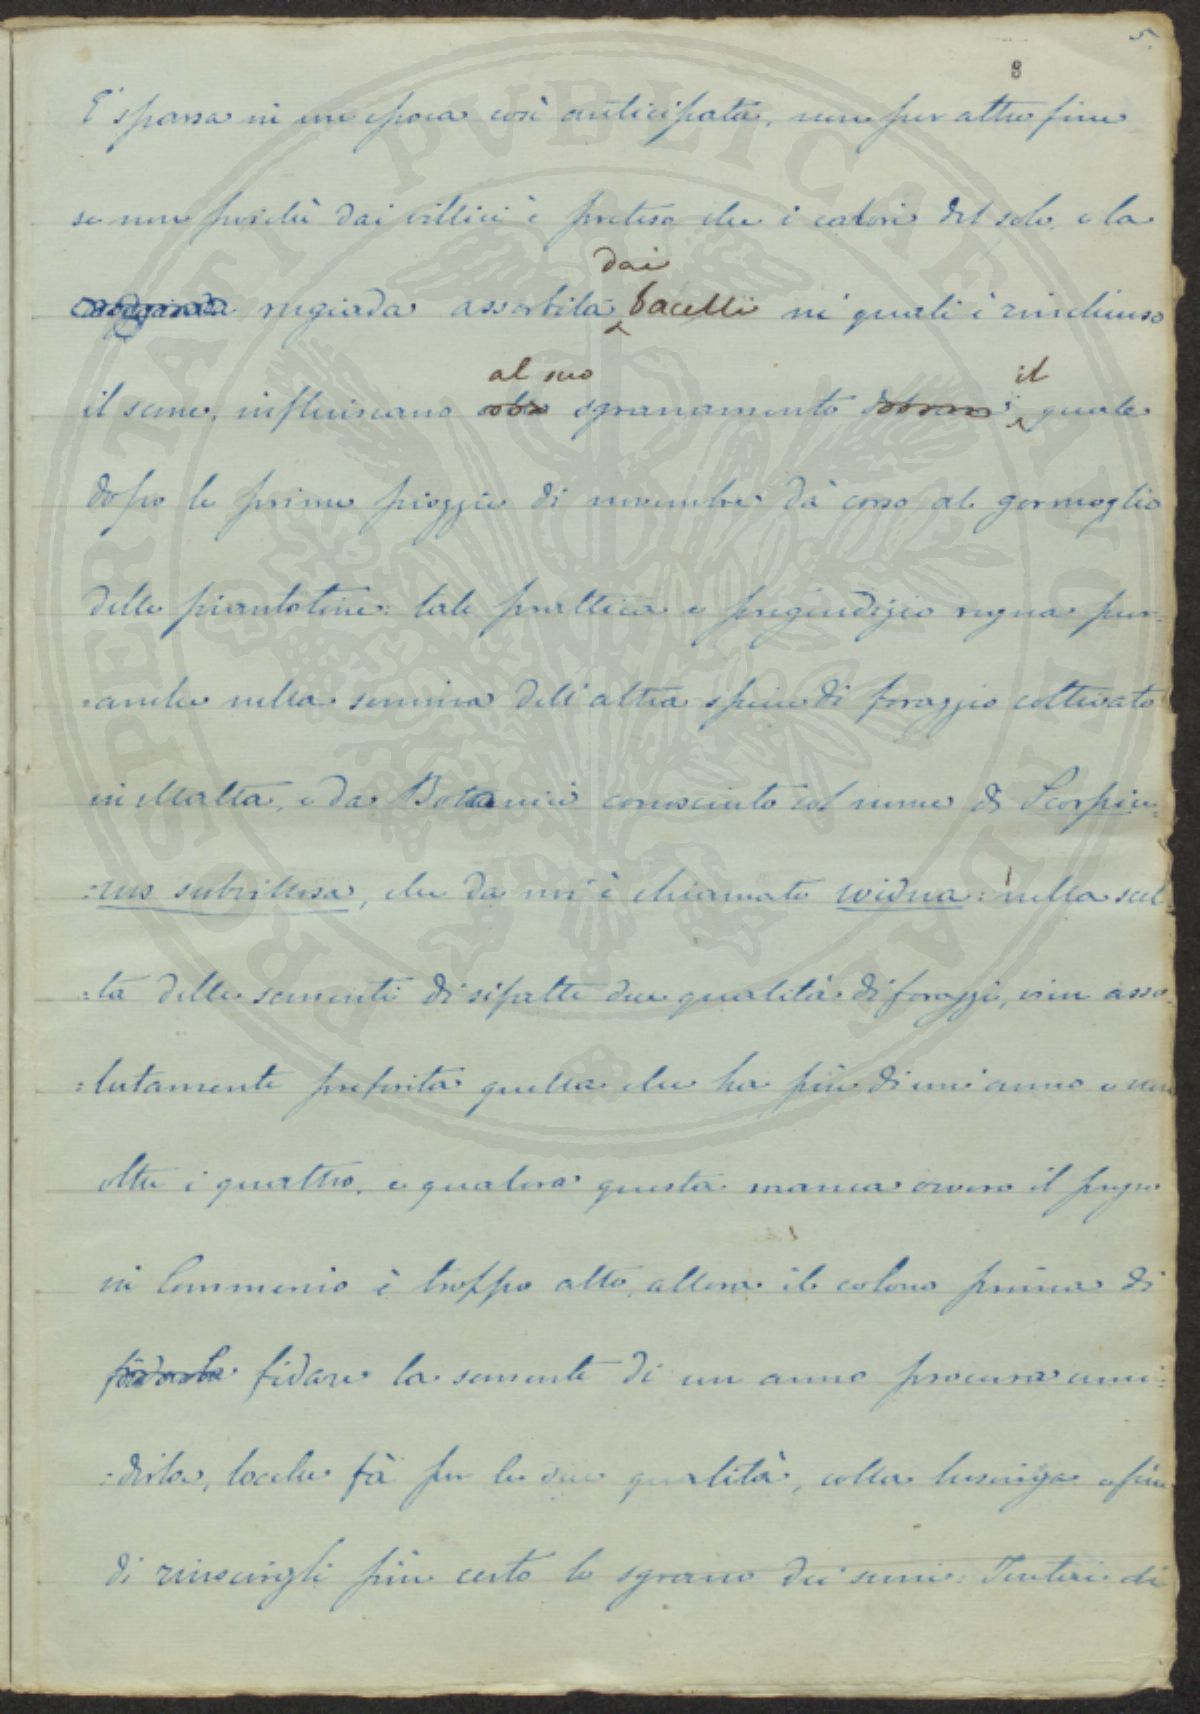 5.
8
E' sparsa in un epoca così anticipata, non per altro fine
se non poichè dai villici è preteso che i calori del sole e la
rugiada assorbita dai bacelli nè quali è rinchiuso
il seme, influiscano al suo sgranamento il quale
dopo le prime pioggie di novembre dà corso al germoglio
delle piantoline: tale prattica e pregiudizio regna pur=
=anche nella semina dell'altra specie di foraggio coltivato
in Malta, e da Botanici conosciuto col nome di Scorpiu=
=rus subvillosa, che da noi è chiamato widna: nella scel=
=ta delle sementi di sifatte due qualità di foraggi, vien asso=
=lutamente preferita quella che ha più di un'anno e non
oltre i quattro, e qualora questa manca ovvero il prezzo
in Commercio è troppo alto, allora il colono prima di
fidare la semente di un anno procura umi=
=dirla, locche fà per le due qualità, colla lusinga
di riuscirgli più certo lo sgrano dei semi: di
PROSPERITATI PVBLICAE AVGENDAE